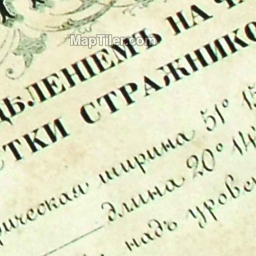 MapTiler.com
ДѢЛЕНІЕМЪ НА Ч
ТКИ СТРАЖНИКО
ическая ширина 51° 15
длина 20° 14
надъ уровне